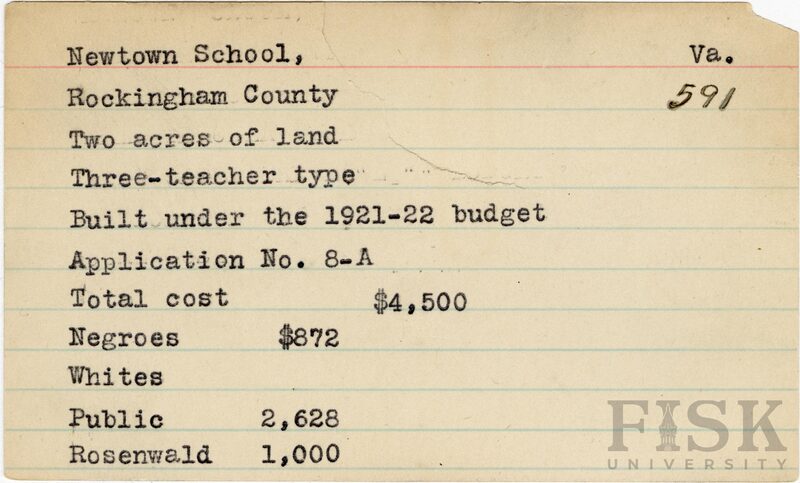 Newtown School, Va.
Rockingham County 591
Two acres of land
Three-teacher type
Built under the 1921-22 budget
Application No. 8-A
Total cost $4,500
Negroes $872
Whites
Public 2,628
Rosenwald 1,000
FISK
UNIVERSITY